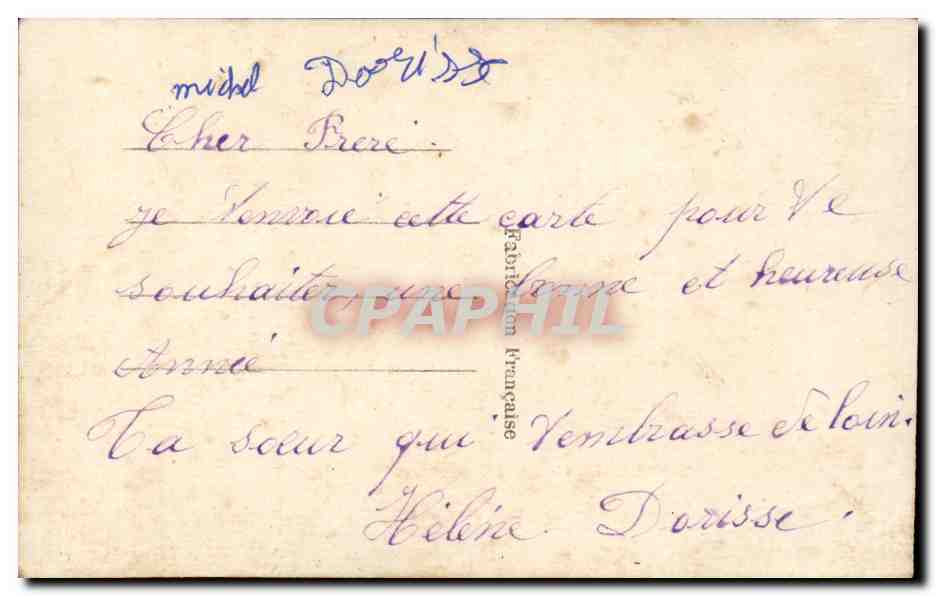 michel Doorisse
Cher Frere.
je t'envoie cette carte pour te
souhaiter une bonne et heureuse
Année
Ta sœur qui t'embrasse de loin.
Hélène Dorisse.
Fabrication Française
CPAPHIL